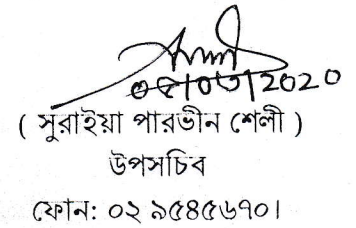 ০৫/০৩/2020
( সুরাইয়া পারভীন শেলী )
উপসচিব
ফোন: ০২ ৯৫৪৫৬৭০।